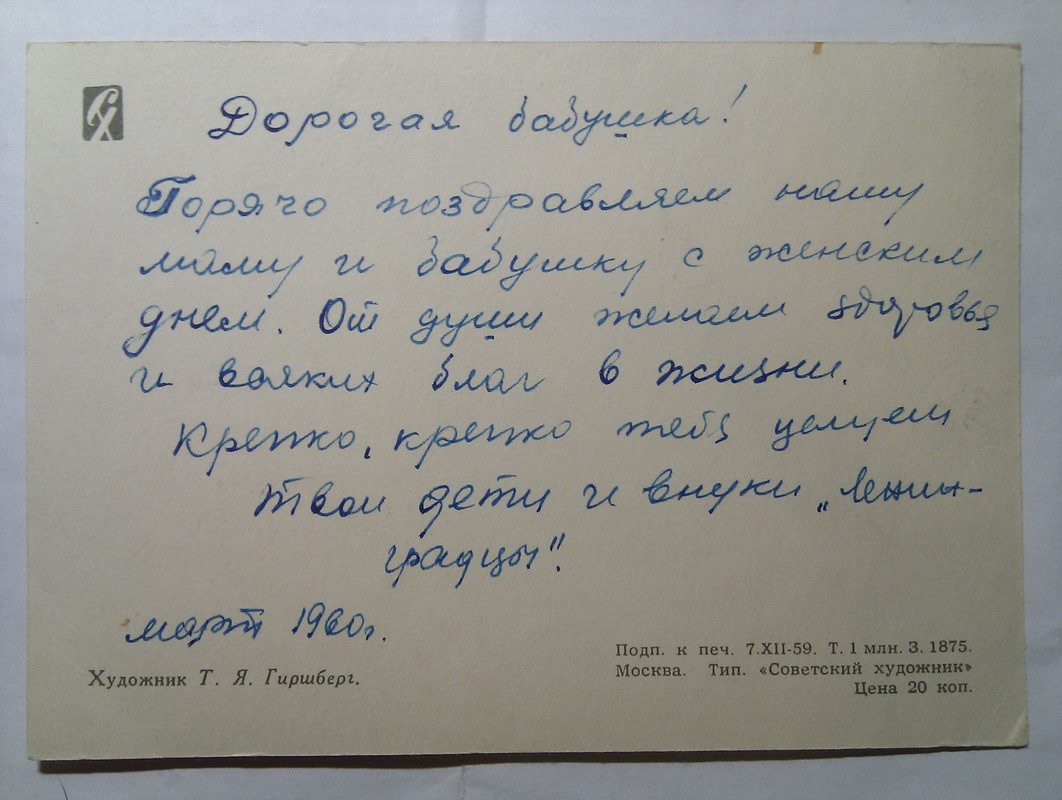 Дорогая бабушка!
Горячо поздравляем нашу
маму и бабушку с женским
днем. От души желаем здоровья
и всяких благ в жизни.
Крепко, крепко тебя целуем
твои дети и внуки „Ленин-
градцы".
март 1960г.
Художник Т. Я. Гиршберг.
Подп. к печ. 7.XII-59. Т. 1 млн. З. 1875.
Москва. Тип. «Советский художник»
Цена 20 коп.